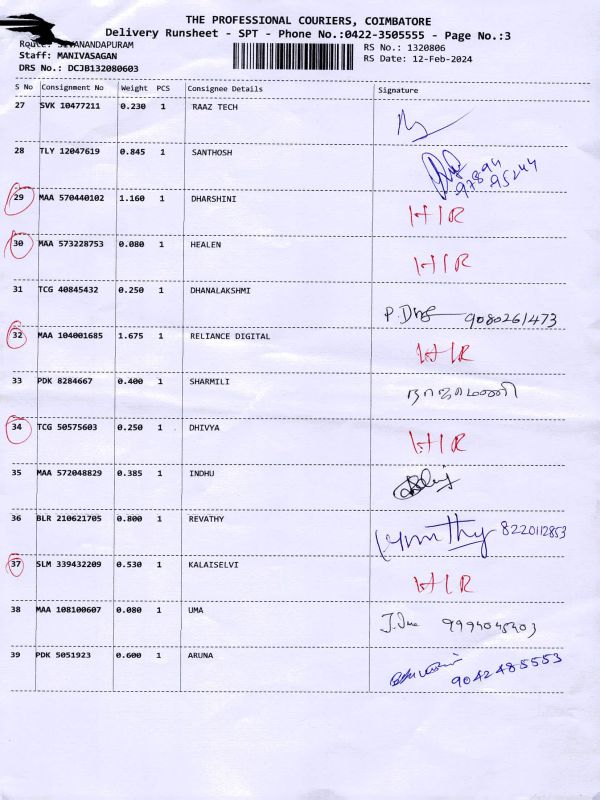 THE PROFESSIONAL COURIERS, COIMBATORE
Delivery Runsheet - SPT - Phone No.:0422-3505555 - Page No.:3
Route: SIVANANDAPURAM
RS No.: 1320806
Staff: MANIVASAGAN
RS Date: 12-Feb-2024
DRS No.: DCJB132080603
S No Consignment No Weight PCS Consignee Details Signature
27 SVK 10477211 0.230 1 RAAZ TECH
28 TLY 12047619 0.845 1 SANTHOSH
97894
95244
29 MAA 570440102 1.160 1 DHARSHINI H/R
30 MAA 573228753 0.080 1 HEALEN H/R
31 TCG 40845432 0.250 1 DHANALAKSHMI
9080261473
32 MAA 104001685 1.675 1 RELIANCE DIGITAL H/R
33 PDK 8284667 0.400 1 SHARMILI நாகமணி
34 TCG 50575603 0.250 1 DHIVYA H/R
35 MAA 572048829 0.385 1 INDHU
36 BLR 210621705 0.800 1 REVATHY 8220112853
37 SLM 339432209 0.530 1 KALAISELVI H/R
38 MAA 108100607 0.080 1 UMA J. Uma 9994045403
39 PDK 5051923 0.600 1 ARUNA 9042485553